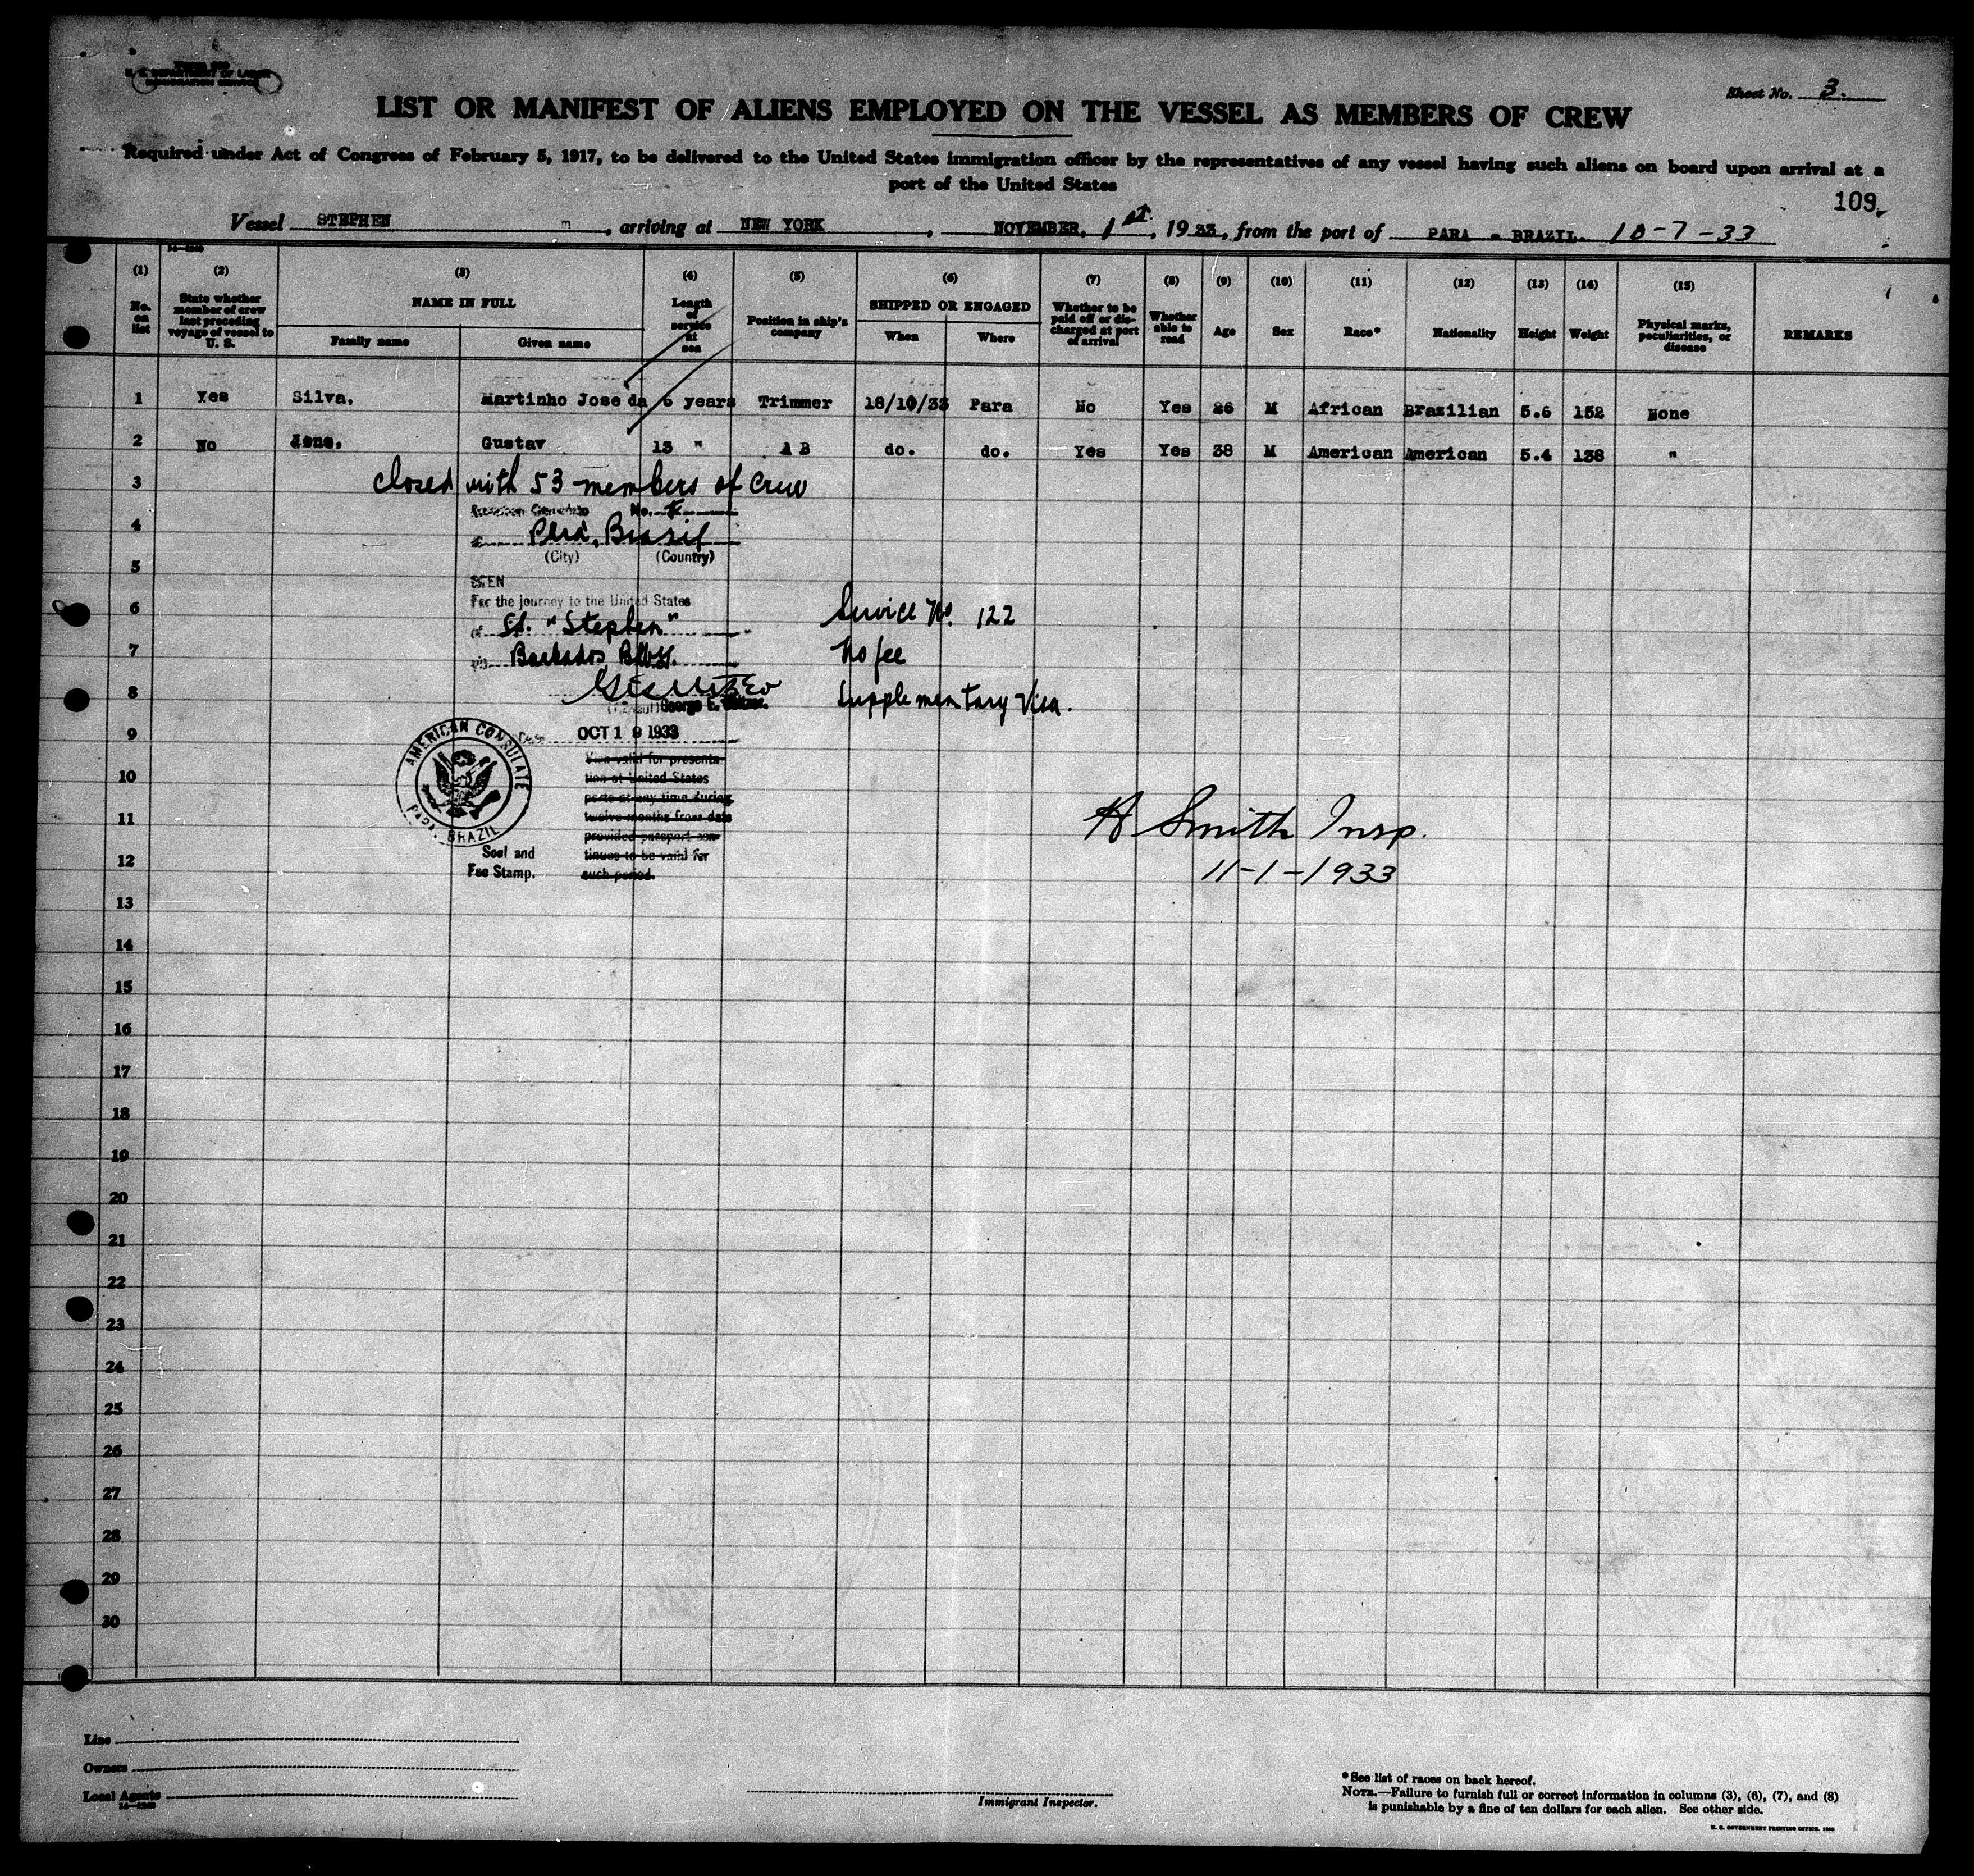 U. S. DEPARTMENT OF LABOR
IMMIGRATION SERVICE
Sheet No. 3.
LIST OR MANIFEST OF ALIENS EMPLOYED ON THE VESSEL AS MEMBERS OF CREW
Required under Act of Congress of February 5, 1917, to be delivered to the United States immigration officer by the representatives of any vessel having such aliens on board upon arrival at a
port of the United States
109
Vessel STEPHEN, arriving at NEW YORK, NOVEMBER, 1st, 1933, from the port of PARA - BRAZIL. 10-7-33
(1) (2) (3) (4) (5) (6) (7) (8) (9) (10) (11) (12) (13) (14) (15)
No. on list
State whether member of crew last preceding voyage of vessel to U. S.
NAME IN FULL
Family name
Given name
Length of service at sea
Position in ship's company
SHIPPED OR ENGAGED
When
Where
Whether to be paid off or discharged at port of arrival
Whether able to read
Age
Sex
Race*
Nationality
Height
Weight
Physical marks, peculiarities, or disease
REMARKS
1 Yes Silva, Martinho Jose da 6 years Trimmer 18/10/33 Para No Yes 26 M African Brazilian 5.6 152 None
2 No Gustav 13 " A B do. do. Yes Yes 38 M American American 5.4 138 "
3 Closed with 53 members of crew
No.
4 Pará, Brazil
(City) (Country)
5
SEEN
For the journey to the United States
6 SS. "Stephen" Service No. 122
7 Barbados, No fee
8 Supplementary Visa.
George E.
9 OCT 19 1933
AMERICAN CONSULATE
PARA, BRAZIL
Visa valid for presenta-
10 tion at United States
ports at any time during
11 twelve months from date
provided passport con-
12 tinues to be valid for
such period.
Seal and
Fee Stamp.
H Smith Insp.
11-1-1933
13
14
15
16
17
18
19
20
21
22
23
24
25
26
27
28
29
30
Line
Owners
Local Agents
Immigrant Inspector.
*See list of races on back hereof.
NOTE.—Failure to furnish full or correct information in columns (3), (6), (7), and (8)
is punishable by a fine of ten dollars for each alien. See other side.
U. S. GOVERNMENT PRINTING OFFICE